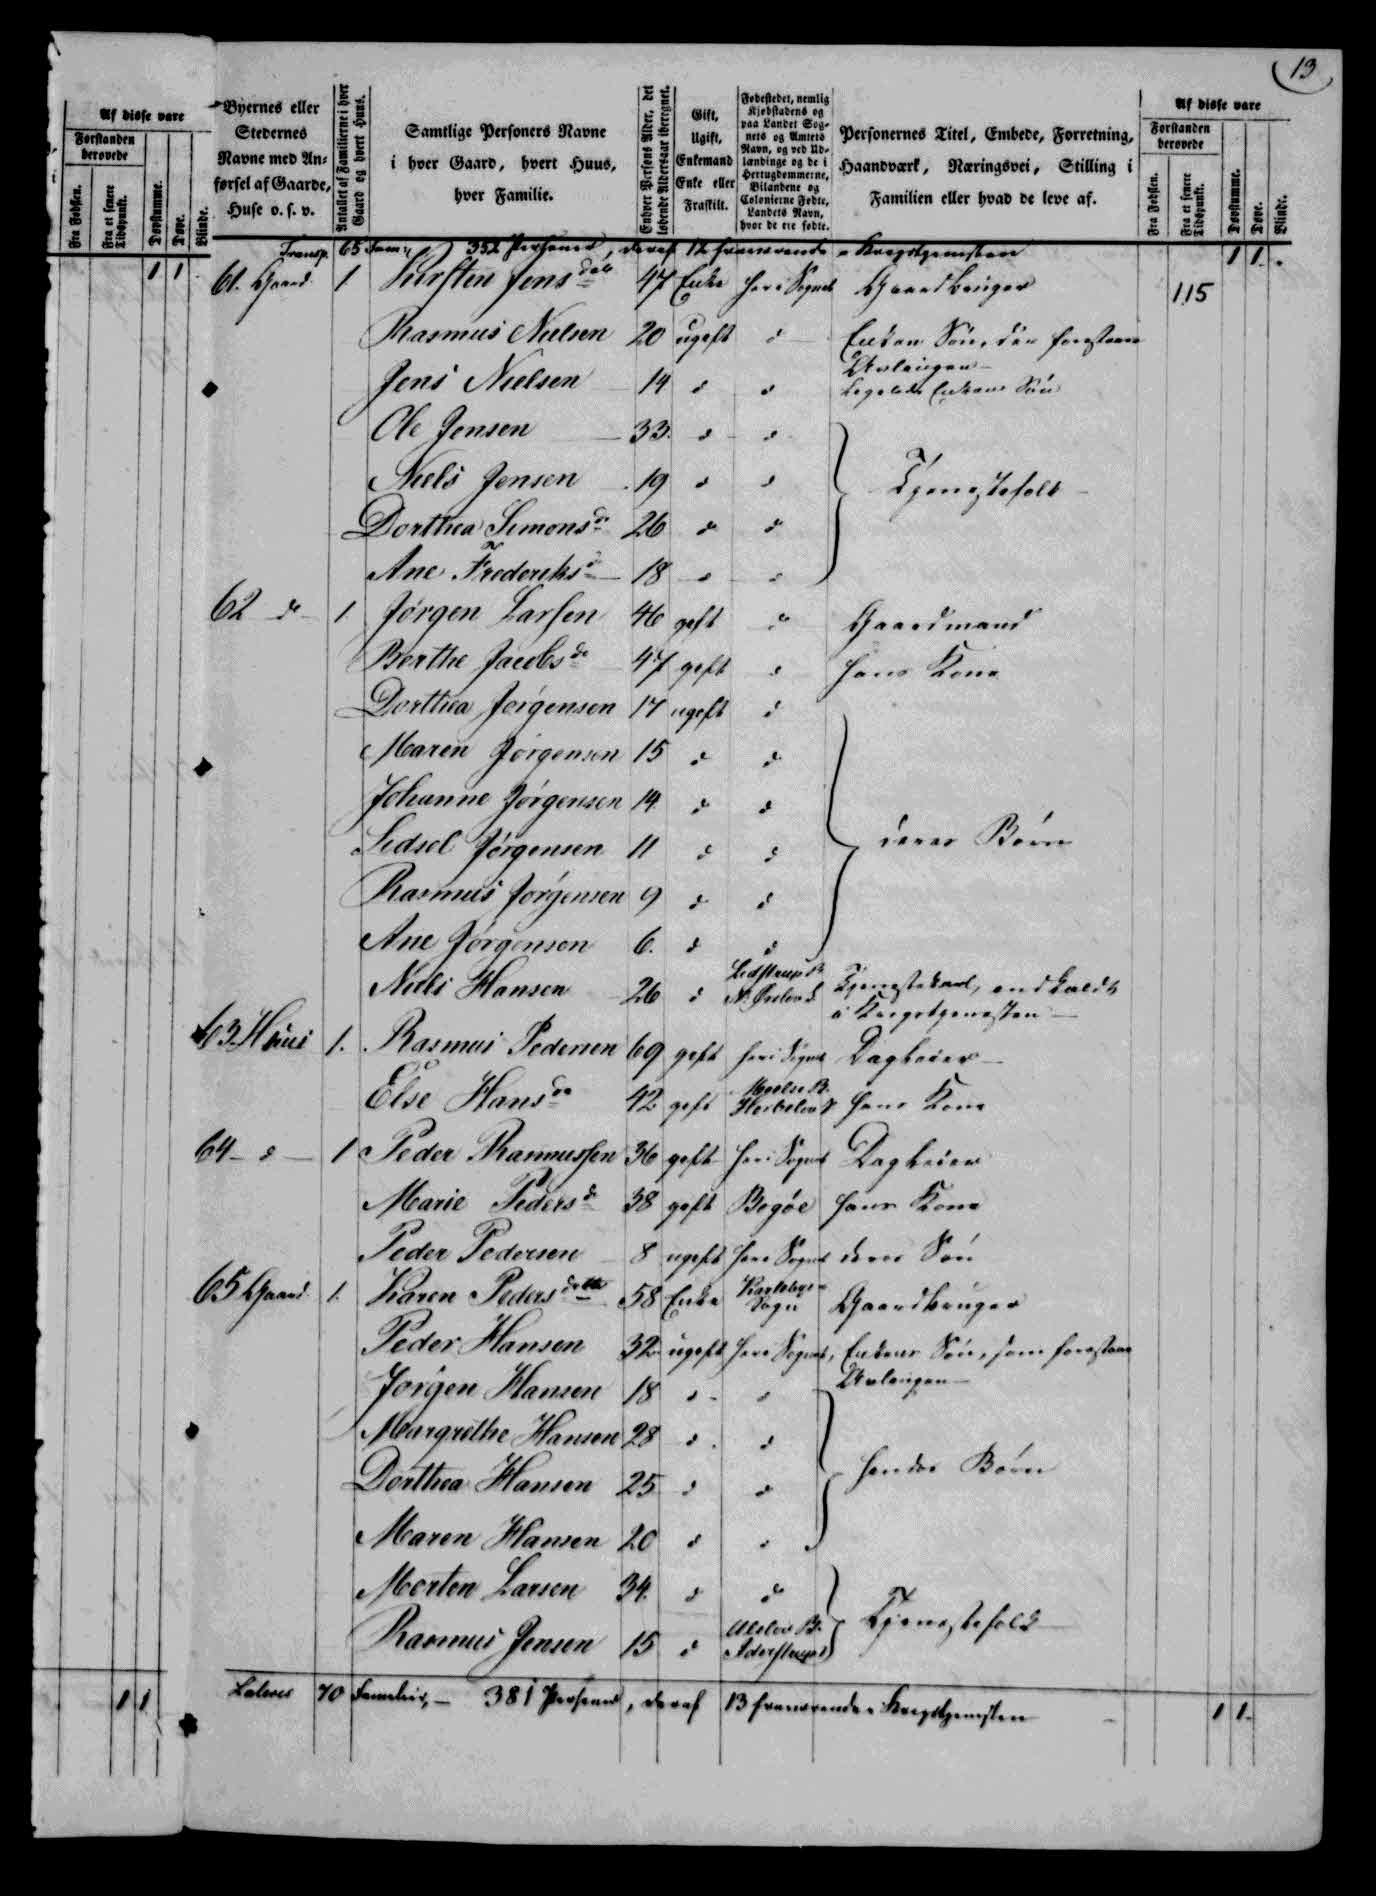 13
Af disse vare
Forstanden
berovede
Fra Fødslen.
Fra et senere
Tidspunkt.
Døvstumme.
Døve.
Blinde.
Byernes eller
Stedernes
Navne med An-
førsel af Gaarde,
Huse o. s. v.
Antallet af Familierne i hver
Gaard og hvert Huus.
Samtlige Personers Navne
i hver Gaard, hvert Huus,
hver Familie.
Enhver Persons Alder, det
løbende Aldersaar iberegnet.
Gift,
Ugift,
Enkemand
Enke eller
Fraskilt.
Fødestedet, nemlig
Kjøbstadens og
paa Landet Sog-
nets og Amtets
Navn, og ved Ud-
lændinge og de i
Hertugdømmerne,
Bilandene og
Colonierne Fødte,
Landets Navn,
hvor de ere fødte.
Personernes Titel, Embede, Forretning,
Haandværk, Næringsvei, Stilling i
Familien eller hvad de leve af.
Af disse vare
Forstanden
berovede
Fra Fødslen.
Fra et senere
Tidspunkt.
Døvstumme.
Døve.
Blinde.
Transp. 65 Fam: 352 Personer, deraf 12 fraværende i Krigstjenesten 1 1
1 1 61. Gaard 1 Kirsten Jensdatr 47 Enke her i Sognet Gaardbruger 115
Rasmus Nielsen 20 ugift d Enkens Søn, der forestaaer
Avlingen
Jens Nielsen 14 d d Ligeledes Enkens Søn
Ole Jensen 33 d d
Niels Jensen 19 d d Tjenestefolk
Dorthea Simonsdr 26 d d
Ane Frederiksd 18 d d
62 do 1 Jørgen Larsen 46 gift do Gaardmand
Berthe Jacobsdr 47 gift d hans Kone
Dorthea Jørgensen 17 ugift d
Maren Jørgensen 15 d d
Johanne Jørgensen 14 d d
Sidsel Jørgensen 11 d d deres Børn
Rasmus Jørgensen 9 d d
Ane Jørgensen 6 d d
Niels Hansen 26 d Tjenestekarl, indkaldt
i Krigstjenesten
63 Huus 1. Rasmus Pedersen 69 gift her i Sognet Dagleier
Else Hansdr 42 gift hans Kone
64 d 1 Peder Rasmussen 36 gift her i Sognet Dagleier
Marie Pedersd 38 gift Bogøe hans Kone
Peder Pedersen 8 ugift her i Sognet deres Søn
65 Gaard 1. Karen Pedersdatter 58 Enke Sogn Gaardbruger
Peder Hansen 32 ugift her i Sognet, Enkens Søn, som forestaaer
Avlingen
Jørgen Hansen 18 d d
Margrethe Hansen 28 d d
Dorthea Hansen 25 d d hendes Børn
Maren Hansen 20 d d
Morten Larsen 34 d do
Rasmus Jensen 15 d Tjenestefolk
1 1 Lateres 70 Familier, 381 Personer, deraf 13 fraværende i Krigstjenesten 1 1